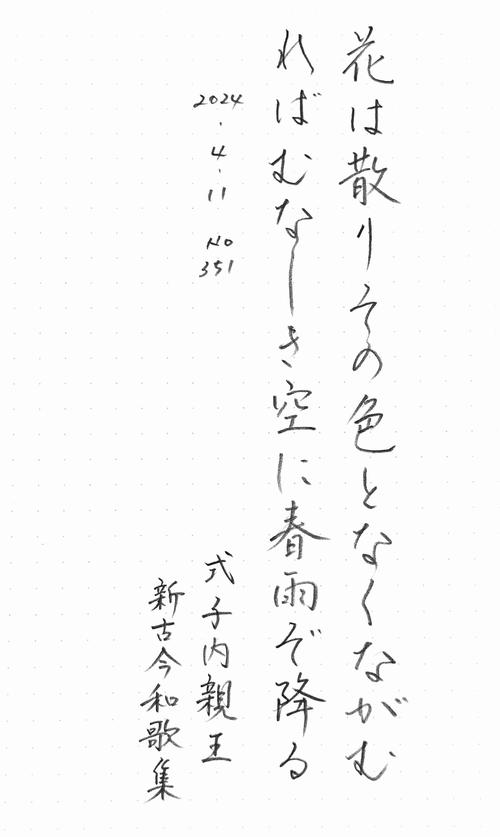 花は散りその色となくながむ
ればむなしき空に春雨ぞ降る
2024.4.11 No 351
式子内親王
新古今和歌集